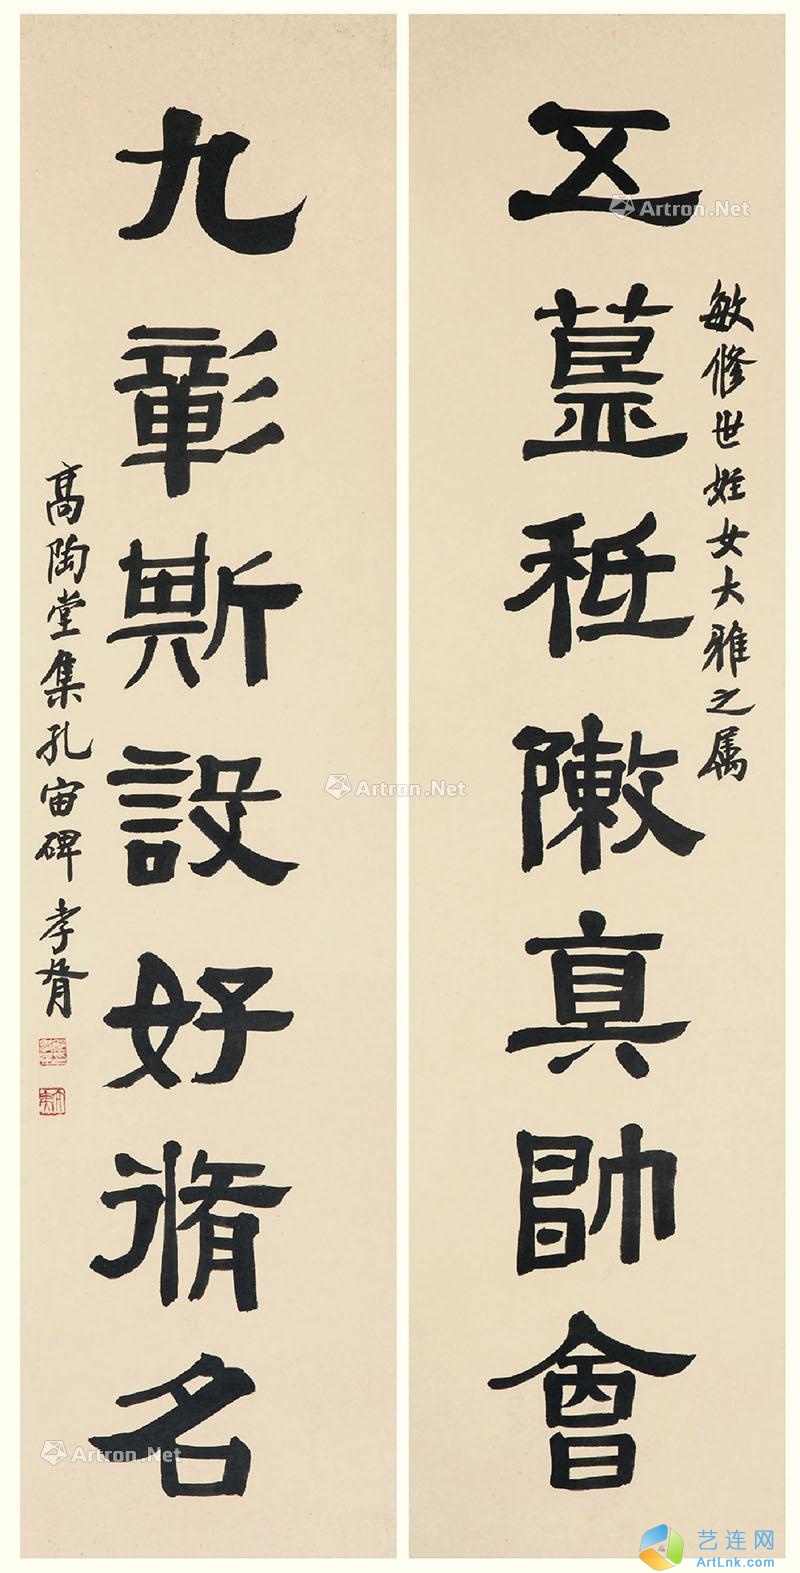 敏修世姪女大雅之属
五簋秪敶真帥會
九彰斯設好脩名
高陶堂集孔宙碑 孝胥
Artron.Net
Artron.Net
Artron.Net
艺连网
ArtLnk.com